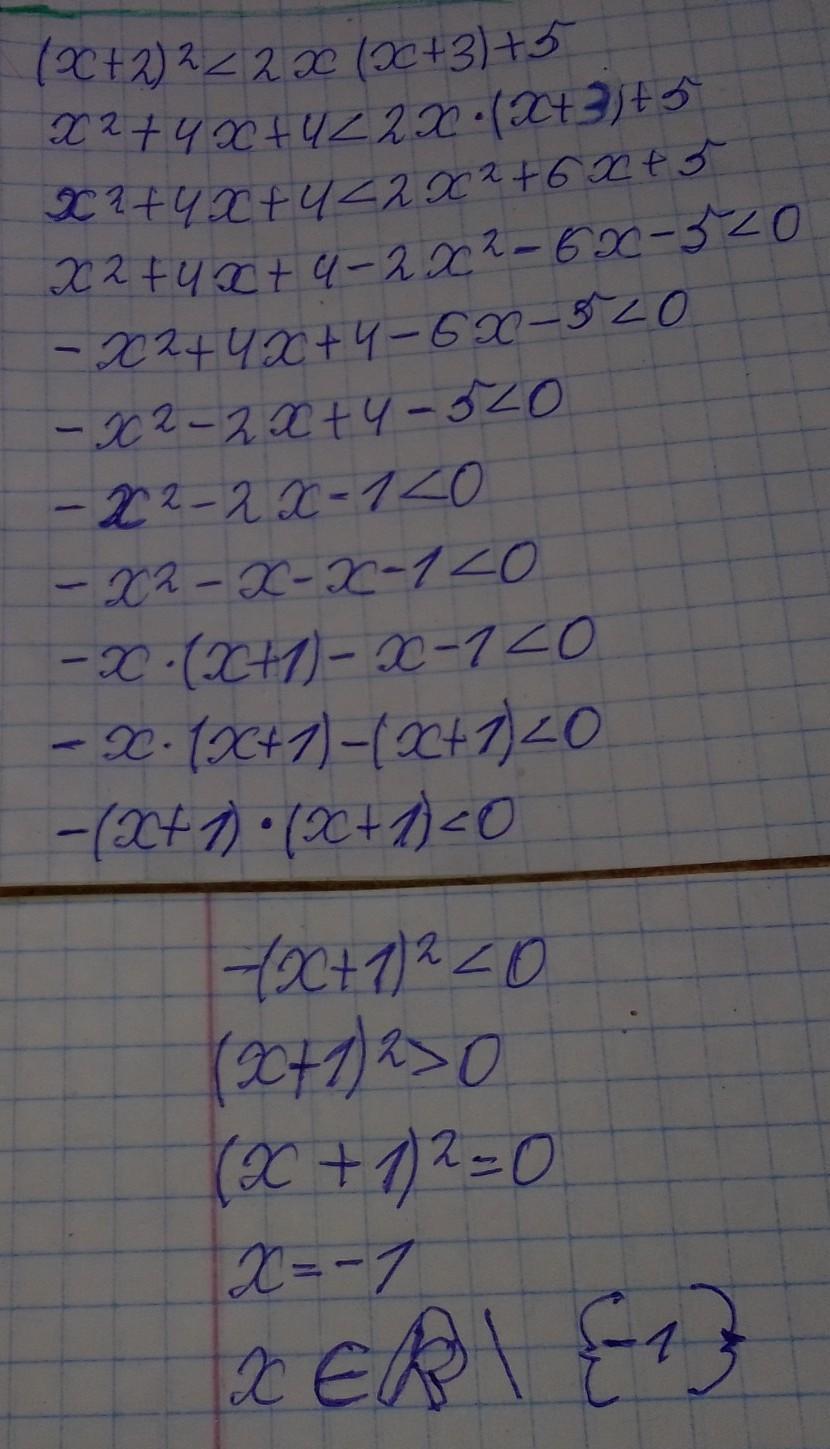 (x+2)²<2x(x+3)+5
x²+4x+4<2x·(x+3)+5
x²+4x+4<2x²+6x+5
x²+4x+4-2x²-6x-5<0
-x²+4x+4-6x-5<0
-x²-2x+4-5<0
-x²-2x-1<0
-x²-x-x-1<0
-x·(x+1)-x-1<0
-x·(x+1)-(x+1)<0
-(x+1)·(x+1)<0
-(x+1)²<0
(x+1)²>0
(x+1)²=0
x=-1
x∈ℝ\{-1}